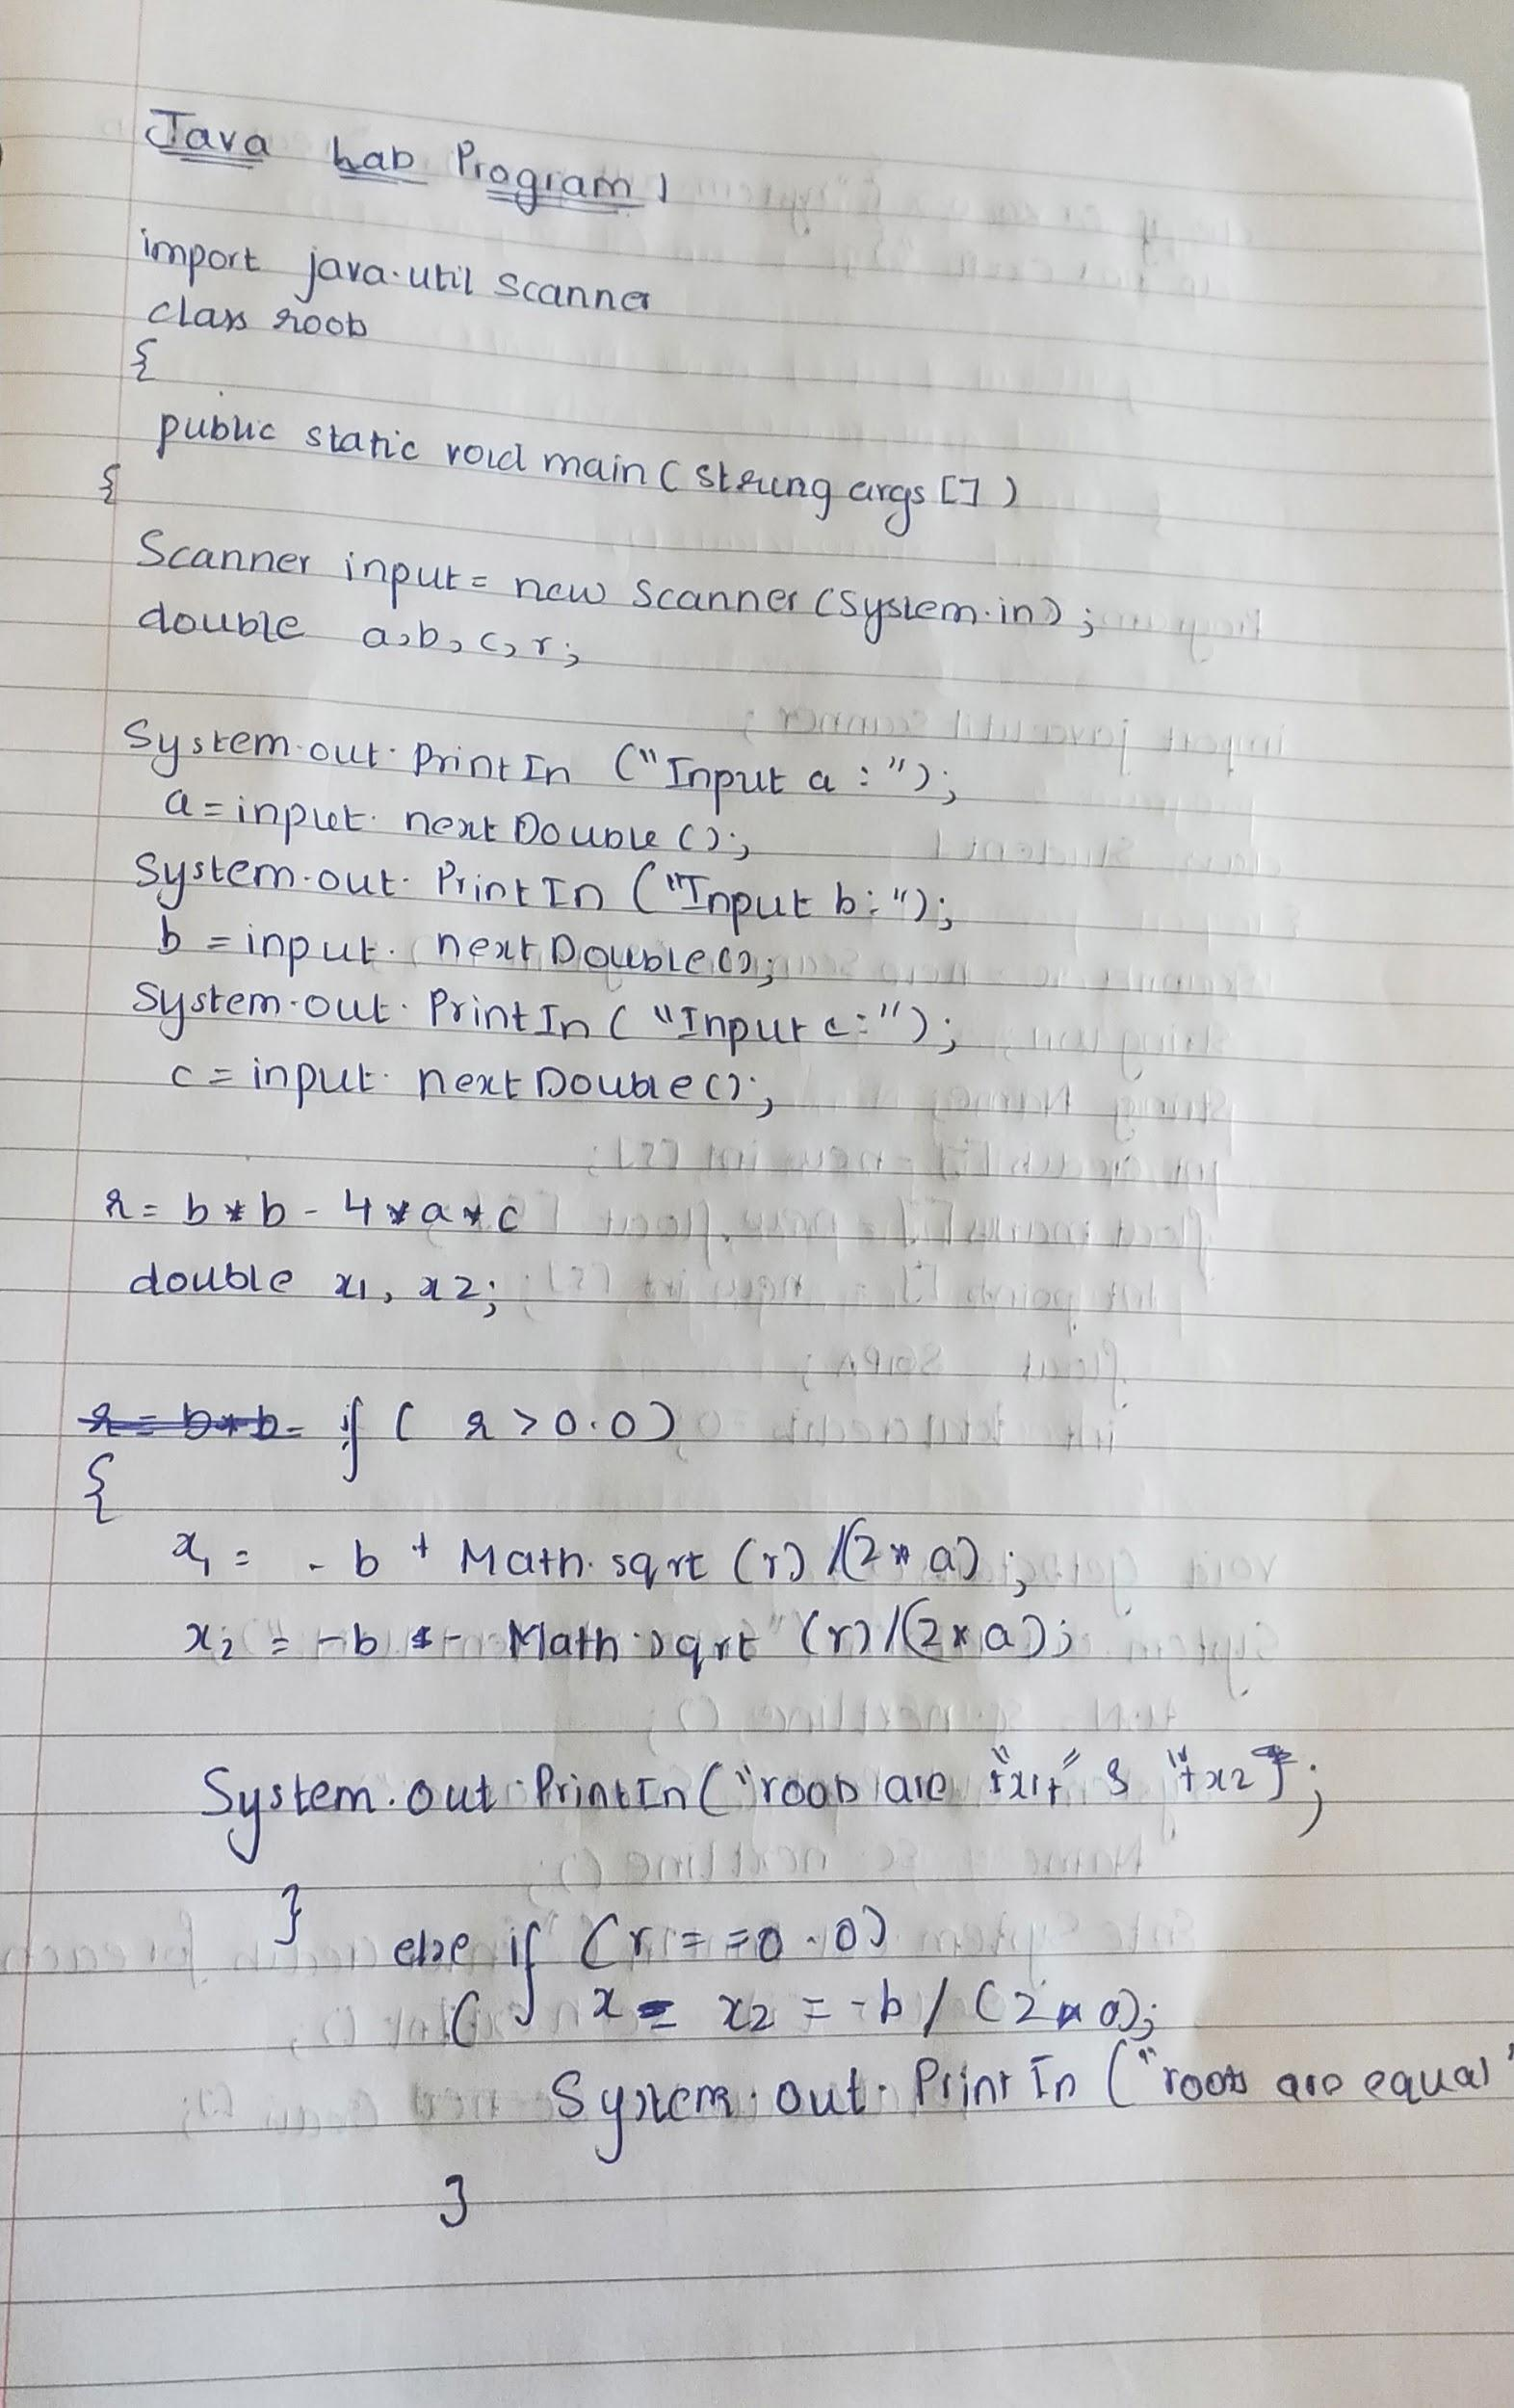 Java Lab Program 1
import java.util scanner
class roots
{
public static void main ( String args [] )
{
Scanner input = new Scanner (System.in) ;
double a, b, c, r ;
System.out.PrintIn ("Input a : ");
a = input. nextDouble ();
System.out. PrintIn ("Input b: ");
b = input. nextDouble ();
System.out. PrintIn ( "Input c: ");
c = input. nextDouble ();
r = b * b - 4 * a * c
double x1, x2;
r = b * b - if ( r > 0.0 )
{
x1 = - b + Math. sqrt (r) /(2 * a) ;
x2 = - b - Math.sqrt (r) /(2 * a) ;
System.out.PrintIn ("roots are "+x1+" & "+x2);
} else if (r = = 0.0)
( x = x2 = -b / (2 * a);
System.out. PrintIn ("roots are equal"
}